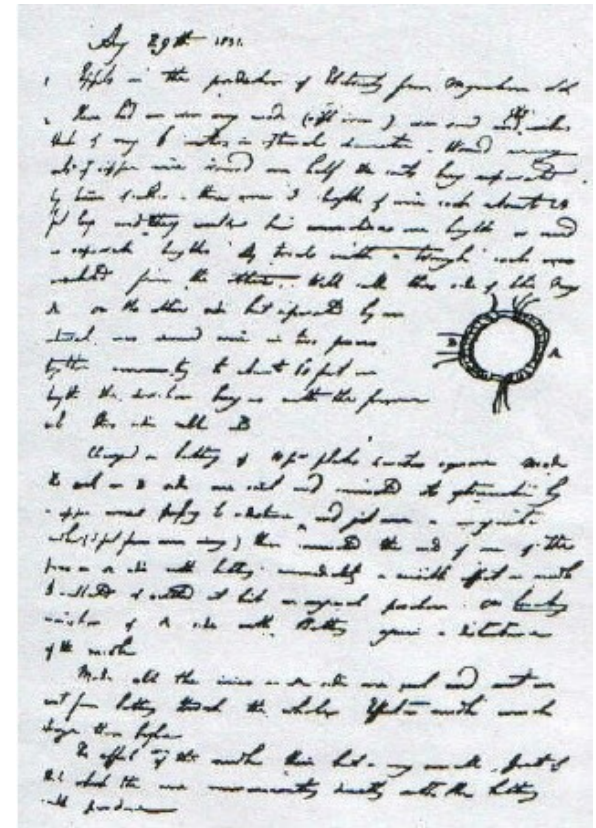 Aug 29th 1831.
1 Expts on the production of Electricity from Magnetism &c &c
2 Have had an iron ring made (soft iron), iron round and 7/8 inches
thick & ring 6 inches in external diameter. Wound many
coils of copper wire round one half the coils being separated
by twine & calico - there were 3 lengths of wire each about 24
feet long and they could be connected as one length or used
as separate lengths. By trial with a trough each was
insulated from the other. Will call this side of the Ring
A. on the other side but separated by an
interval was wound wire in two pieces
together amounting to about 60 feet in
length the direction being as with the former
coils this side call B
B
A
Charged a battery of 10 pr plates 4 inches square. Made
the coil on B side one coil and connected its extremities by
a copper wire passing to a distance and just over a magnetic
needle (3 feet from iron ring) then connected the ends of one of the
pieces on A side with battery immediately a sensible effect on needle
It oscillated & settled at last in original position. On breaking
connection of A side with Battery again a disturbance
of the needle
Made all the wires on A side one coil and sent
current from battery through the whole. Effect on needle much
stronger than before
The effect on the needle then but a very small part of
that which the wire communicating directly with the battery
could produce